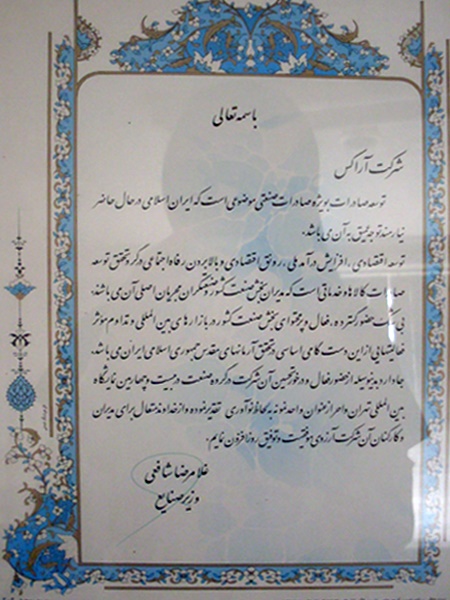 باسمه تعالی
شرکت آراکس
توسعه صادرات بویژه صادرات صنعتی موضوعی است که ایران اسلامی در حال حاضر
نیازمند توجه عمیق به آن می باشد.
توسعه اقتصادی، افزایش درآمد ملی، رونق اقتصادی و بالا بردن رفاه اجتماعی در گرو تحقق توسعه
صادرات کالاها و خدماتی است که مدیران بخش صنعت کشور و صنعتگران مجریان اصلی آن می باشند.
بی شک حضور گسترده، فعال و پرمحتوای بخش صنعت کشور در بازارهای بین المللی و تداوم مؤثر
فعالیتهایی از این دست گامی اساسی در تحقق آرمانهای مقدس جمهوری اسلامی ایران می باشد.
جا دارد بدینوسیله از حضور فعال و در خور تحسین آن شرکت در گروه صنعت در بیست و چهارمین نمایشگاه
بین المللی تهران و احراز عنوان واحد نمونه به لحاظ نوآوری تقدیر نموده و از خداوند متعال برای مدیران
و کارکنان آن شرکت آرزوی موفقیت و توفیق روزافزون نمایم.
غلامرضا شافعی
وزیر صنایع